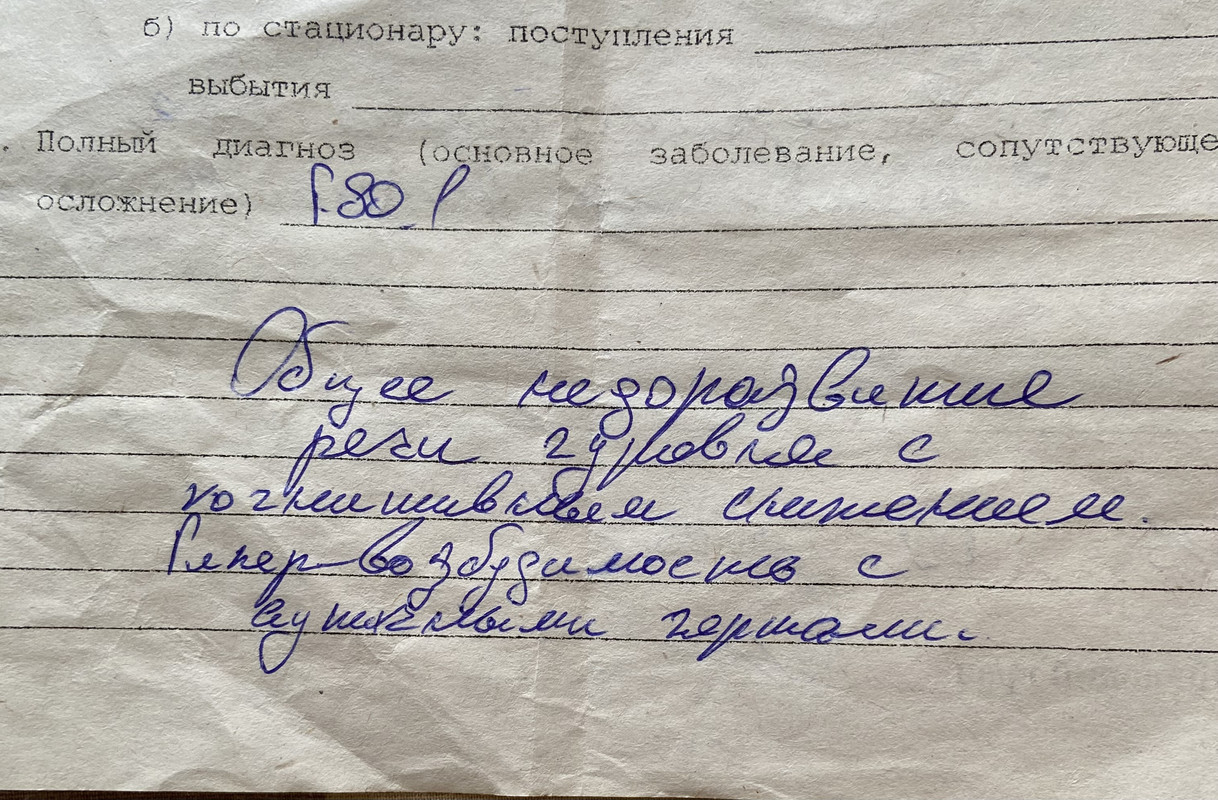 б) по стационару: поступления
выбытия
. Полный диагноз (основное заболевание, сопутствующе
осложнение) F80
Общее недоразвитие
речи 2 уровня с
когнитивным снижением.
Гипервозбудимость с
аутичными чертами.